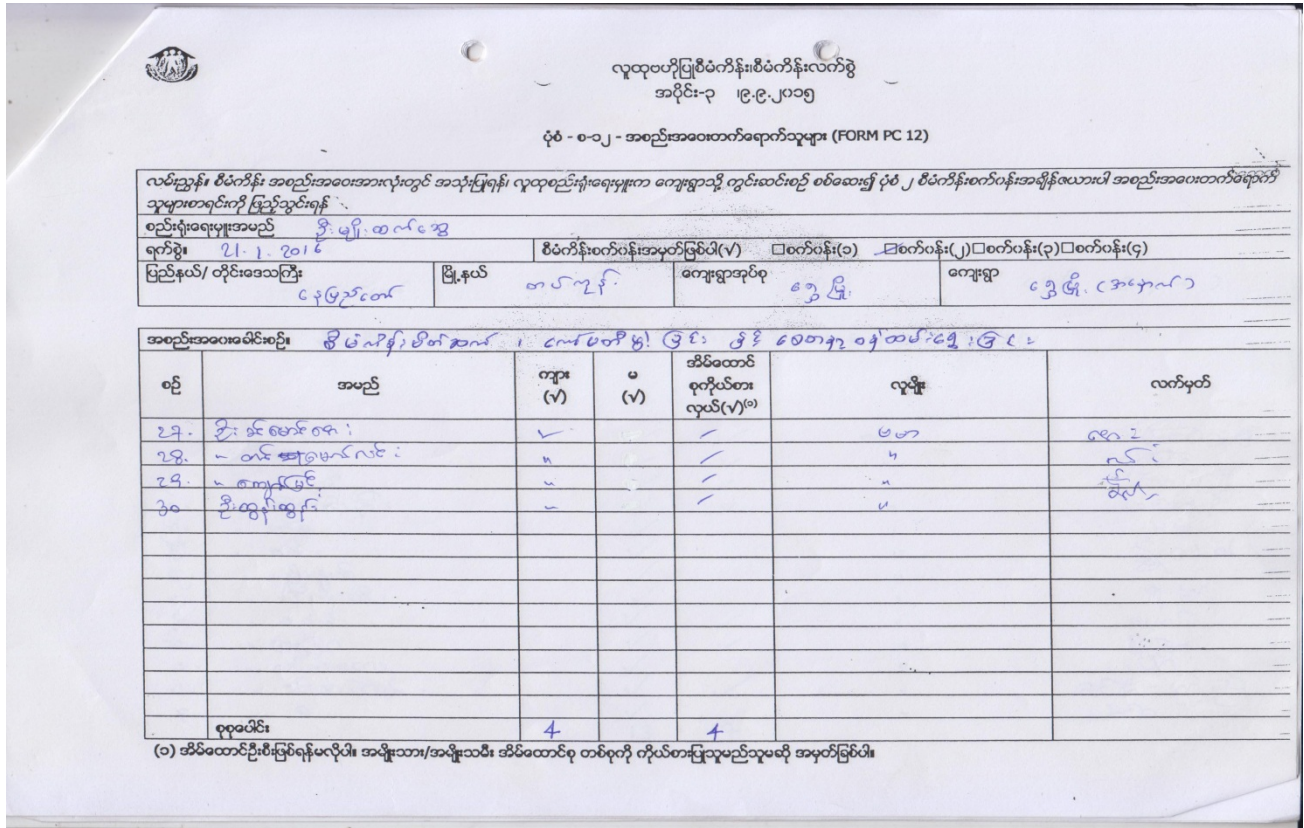 လူထုဗဟိုပြုစီမံကိန်း၊စီမံကိန်းလက်စွဲ
အပိုင်း-၃ ၊၉.၉.၂၀၁၅
ပုံစံ - စ-၁၂ - အစည်းအဝေးတက်ရောက်သူများ (FORM PC 12)
လမ်းညွှန်။ စီမံကိန်း အစည်းအဝေးအားလုံးတွင် အသုံးပြုရန်၊ လူထုစည်းရုံးရေးမှူးက ကျေးရွာသို့ ကွင်းဆင်းစဉ် စစ်ဆေး၍ ပုံစံ ၂ စီမံကိန်းစက်ဝန်းအချိန်ဇယားပါ အစည်းအဝေးတက်ရောက်
သူများစာရင်းကို ဖြည့်သွင်းရန်
စည်းရုံးရေးမှူးအမည် ဦးမျိုးထက်ဆွေ
ရက်စွဲ။ 21.1.2016 စီမံကိန်းစက်ဝန်းအမှတ်ဖြစ်ပါ(√) ☐စက်ဝန်း(၁) ☑စက်ဝန်း(၂)☐စက်ဝန်း(၃)☐စက်ဝန်း(၄)
ပြည်နယ်/ တိုင်းဒေသကြီး နေပြည်တော် မြို့နယ် တပ်ကုန်း ကျေးရွာအုပ်စု ရွှေမြို့ ကျေးရွာ ရွှေမြို့ (အနောက်)
အစည်းအဝေးခေါင်းစဉ်။ စီမံကိန်းမိတ်ဆက် ၊ ကော်မတီဖွဲ့ခြင်း နှင့် စေတနာ့ဝန်ထမ်းရွေးခြင်း
စဉ် အမည် ကျား (√) မ (√) အိမ်ထောင်စုကိုယ်စားလှယ်(√)⁽¹⁾ လူမျိုး လက်မှတ်
၂၇. ဦးခင်မောင်ဇော် ✓ / ဗမာ
၂၈. " တင်မောင်လင်း " / "
၂၉. " ကျော်မြင့် " / "
၃၀ ဦးထွန်းထွန်း " / "
စုစုပေါင်း 4 4
(၁) အိမ်ထောင်ဦးစီးဖြစ်ရန်မလိုပါ။ အမျိုးသား/အမျိုးသမီး အိမ်ထောင်စု တစ်စုကို ကိုယ်စားပြုသူမည်သူမဆို အမှတ်ဖြစ်ပါ။